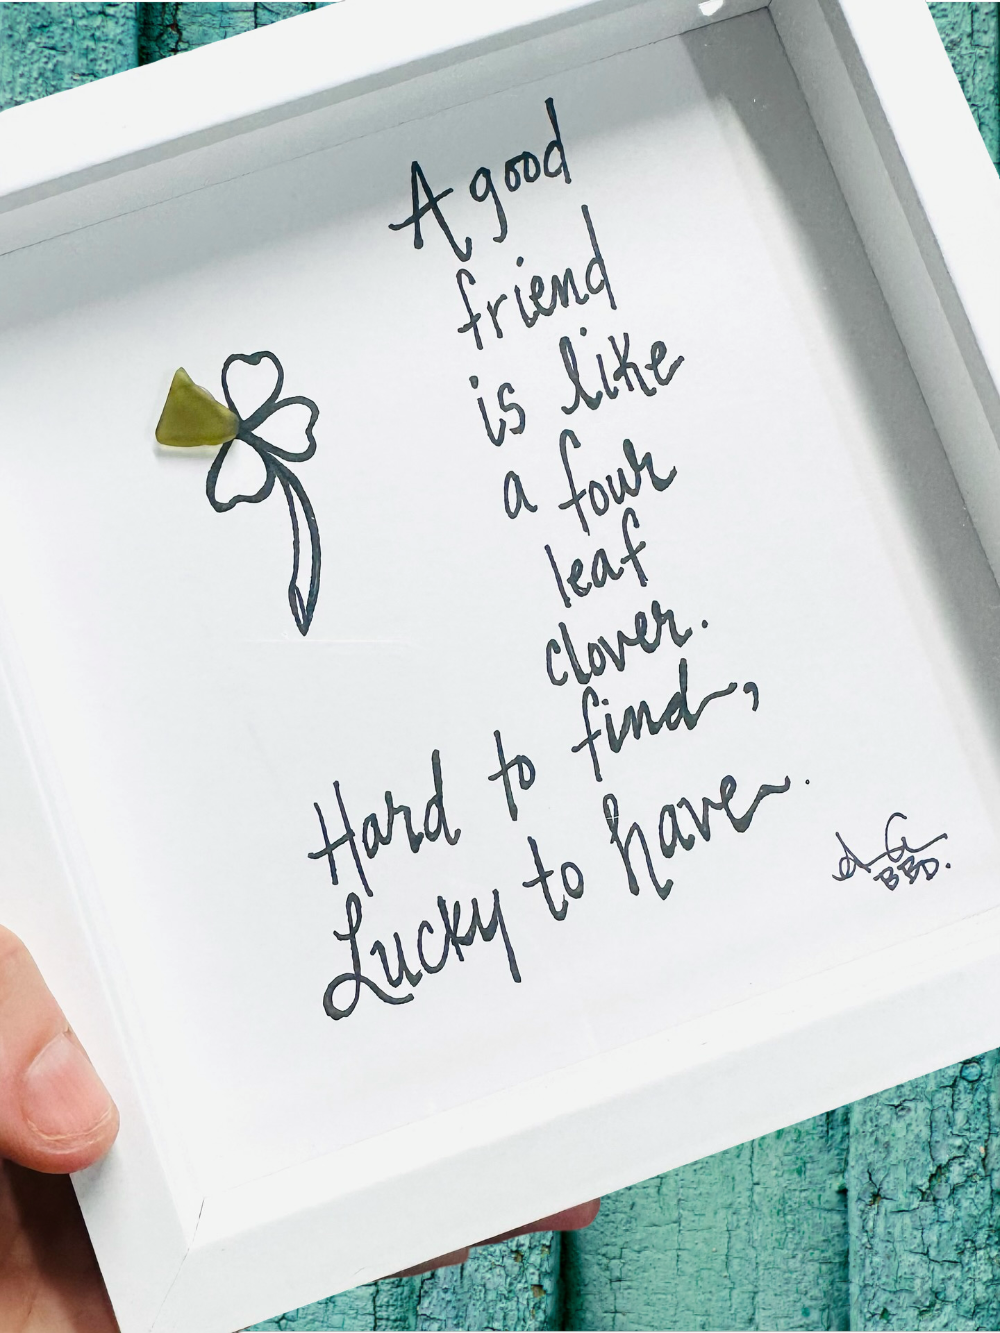 A good
friend
is like
a four
leaf
clover.
Hard to find,
Lucky to have.
BBD.